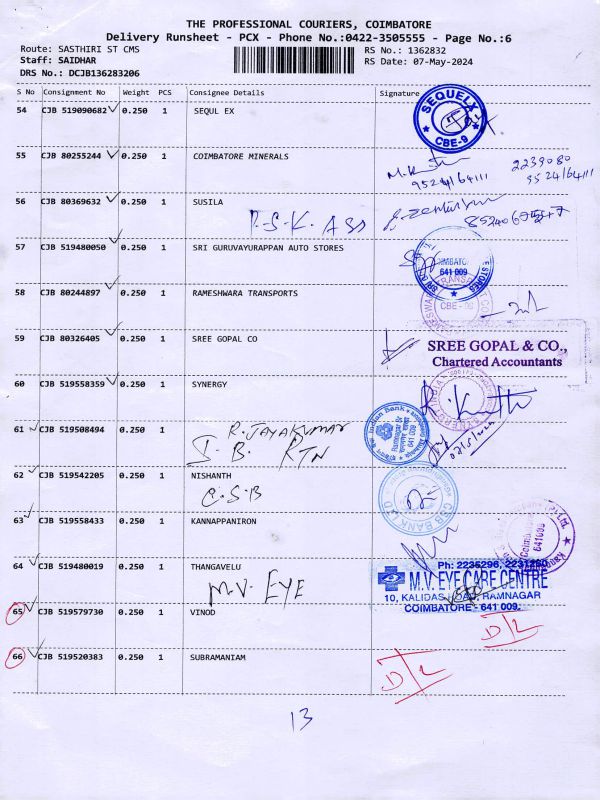 THE PROFESSIONAL COURIERS, COIMBATORE
Delivery Runsheet - PCX - Phone No.:0422-3505555 - Page No.:6
Route: SASTHIRI ST CMS
RS No.: 1362832
Staff: SAIDHAR
RS Date: 07-May-2024
DRS No.: DCJB136283206
S No Consignment No Weight PCS Consignee Details Signature
54 CJB 519090682 0.250 1 SEQUL EX
SEQUELX
CBE-9
55 CJB 80255244 0.250 1 COIMBATORE MINERALS
2239080
9524164111 9524164111
56 CJB 80369632 0.250 1 SUSILA
P.S.K. ASS
57 CJB 519480050 0.250 1 SRI GURUVAYURAPPAN AUTO STORES
641 009
58 CJB 80244897 0.250 1 RAMESHWARA TRANSPORTS
59 CJB 80326405 0.250 1 SREE GOPAL CO
SREE GOPAL & CO.,
Chartered Accountants
60 CJB 519558359 0.250 1 SYNERGY
61 CJB 519508494 0.250 1 R. JAYAKUMAR
I. B. RTN
Indian Bank
62 CJB 519542205 0.250 1 NISHANTH
C.S.B
CSB BANK LTD
63 CJB 519558433 0.250 1 KANNAPPANIRON
641009
64 CJB 519480019 0.250 1 THANGAVELU
M.V. EYE
Ph: 2236296, 2231290
M.V. EYE CARE CENTRE
10, KALIDAS RAMNAGAR
COIMBATORE - 641 009.
65 CJB 519579730 0.250 1 VINOD
D/L
66 CJB 519520383 0.250 1 SUBRAMANIAM
D/L
13